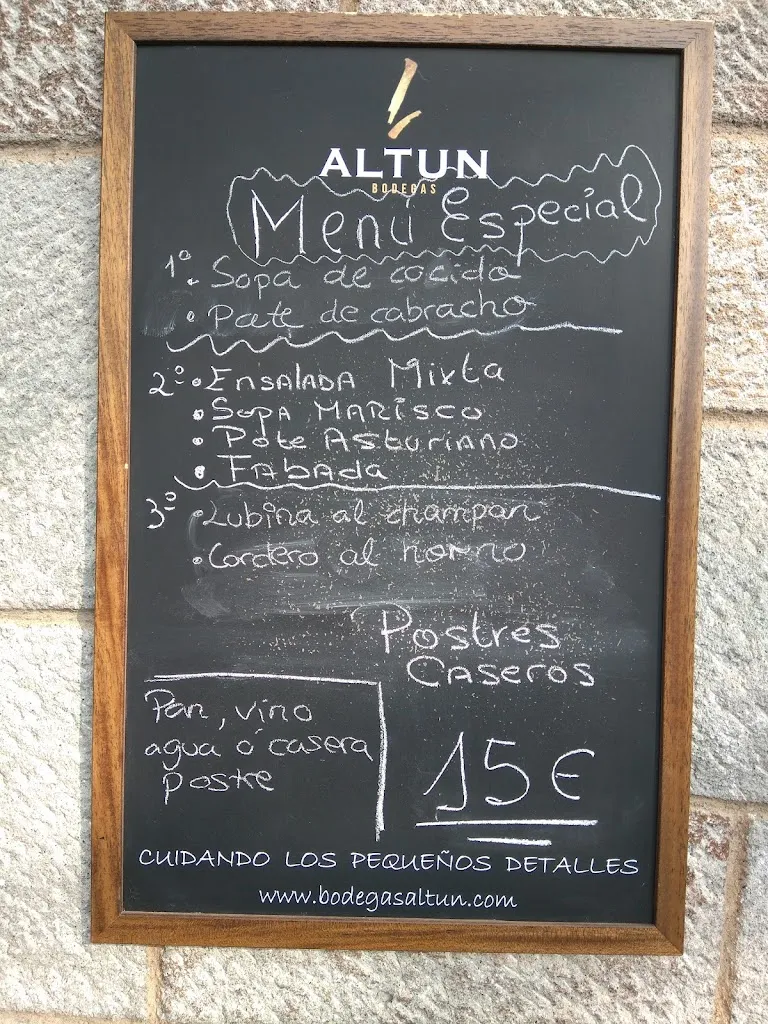 ALTUN
BODEGAS
Menú Especial
1º • Sopa de cocido
• Pate de cabracho
2º • ENSALADA Mixta
• SOPA MARISCO
• Pote Asturiano
• FAbADA
3º • Lubina al champan
• Cordero al horno
Postres
Caseros
Pan, vino
agua ó casera
postre
15€
CUIDANDO LOS PEQUEÑOS DETALLES
www.bodegasaltun.com